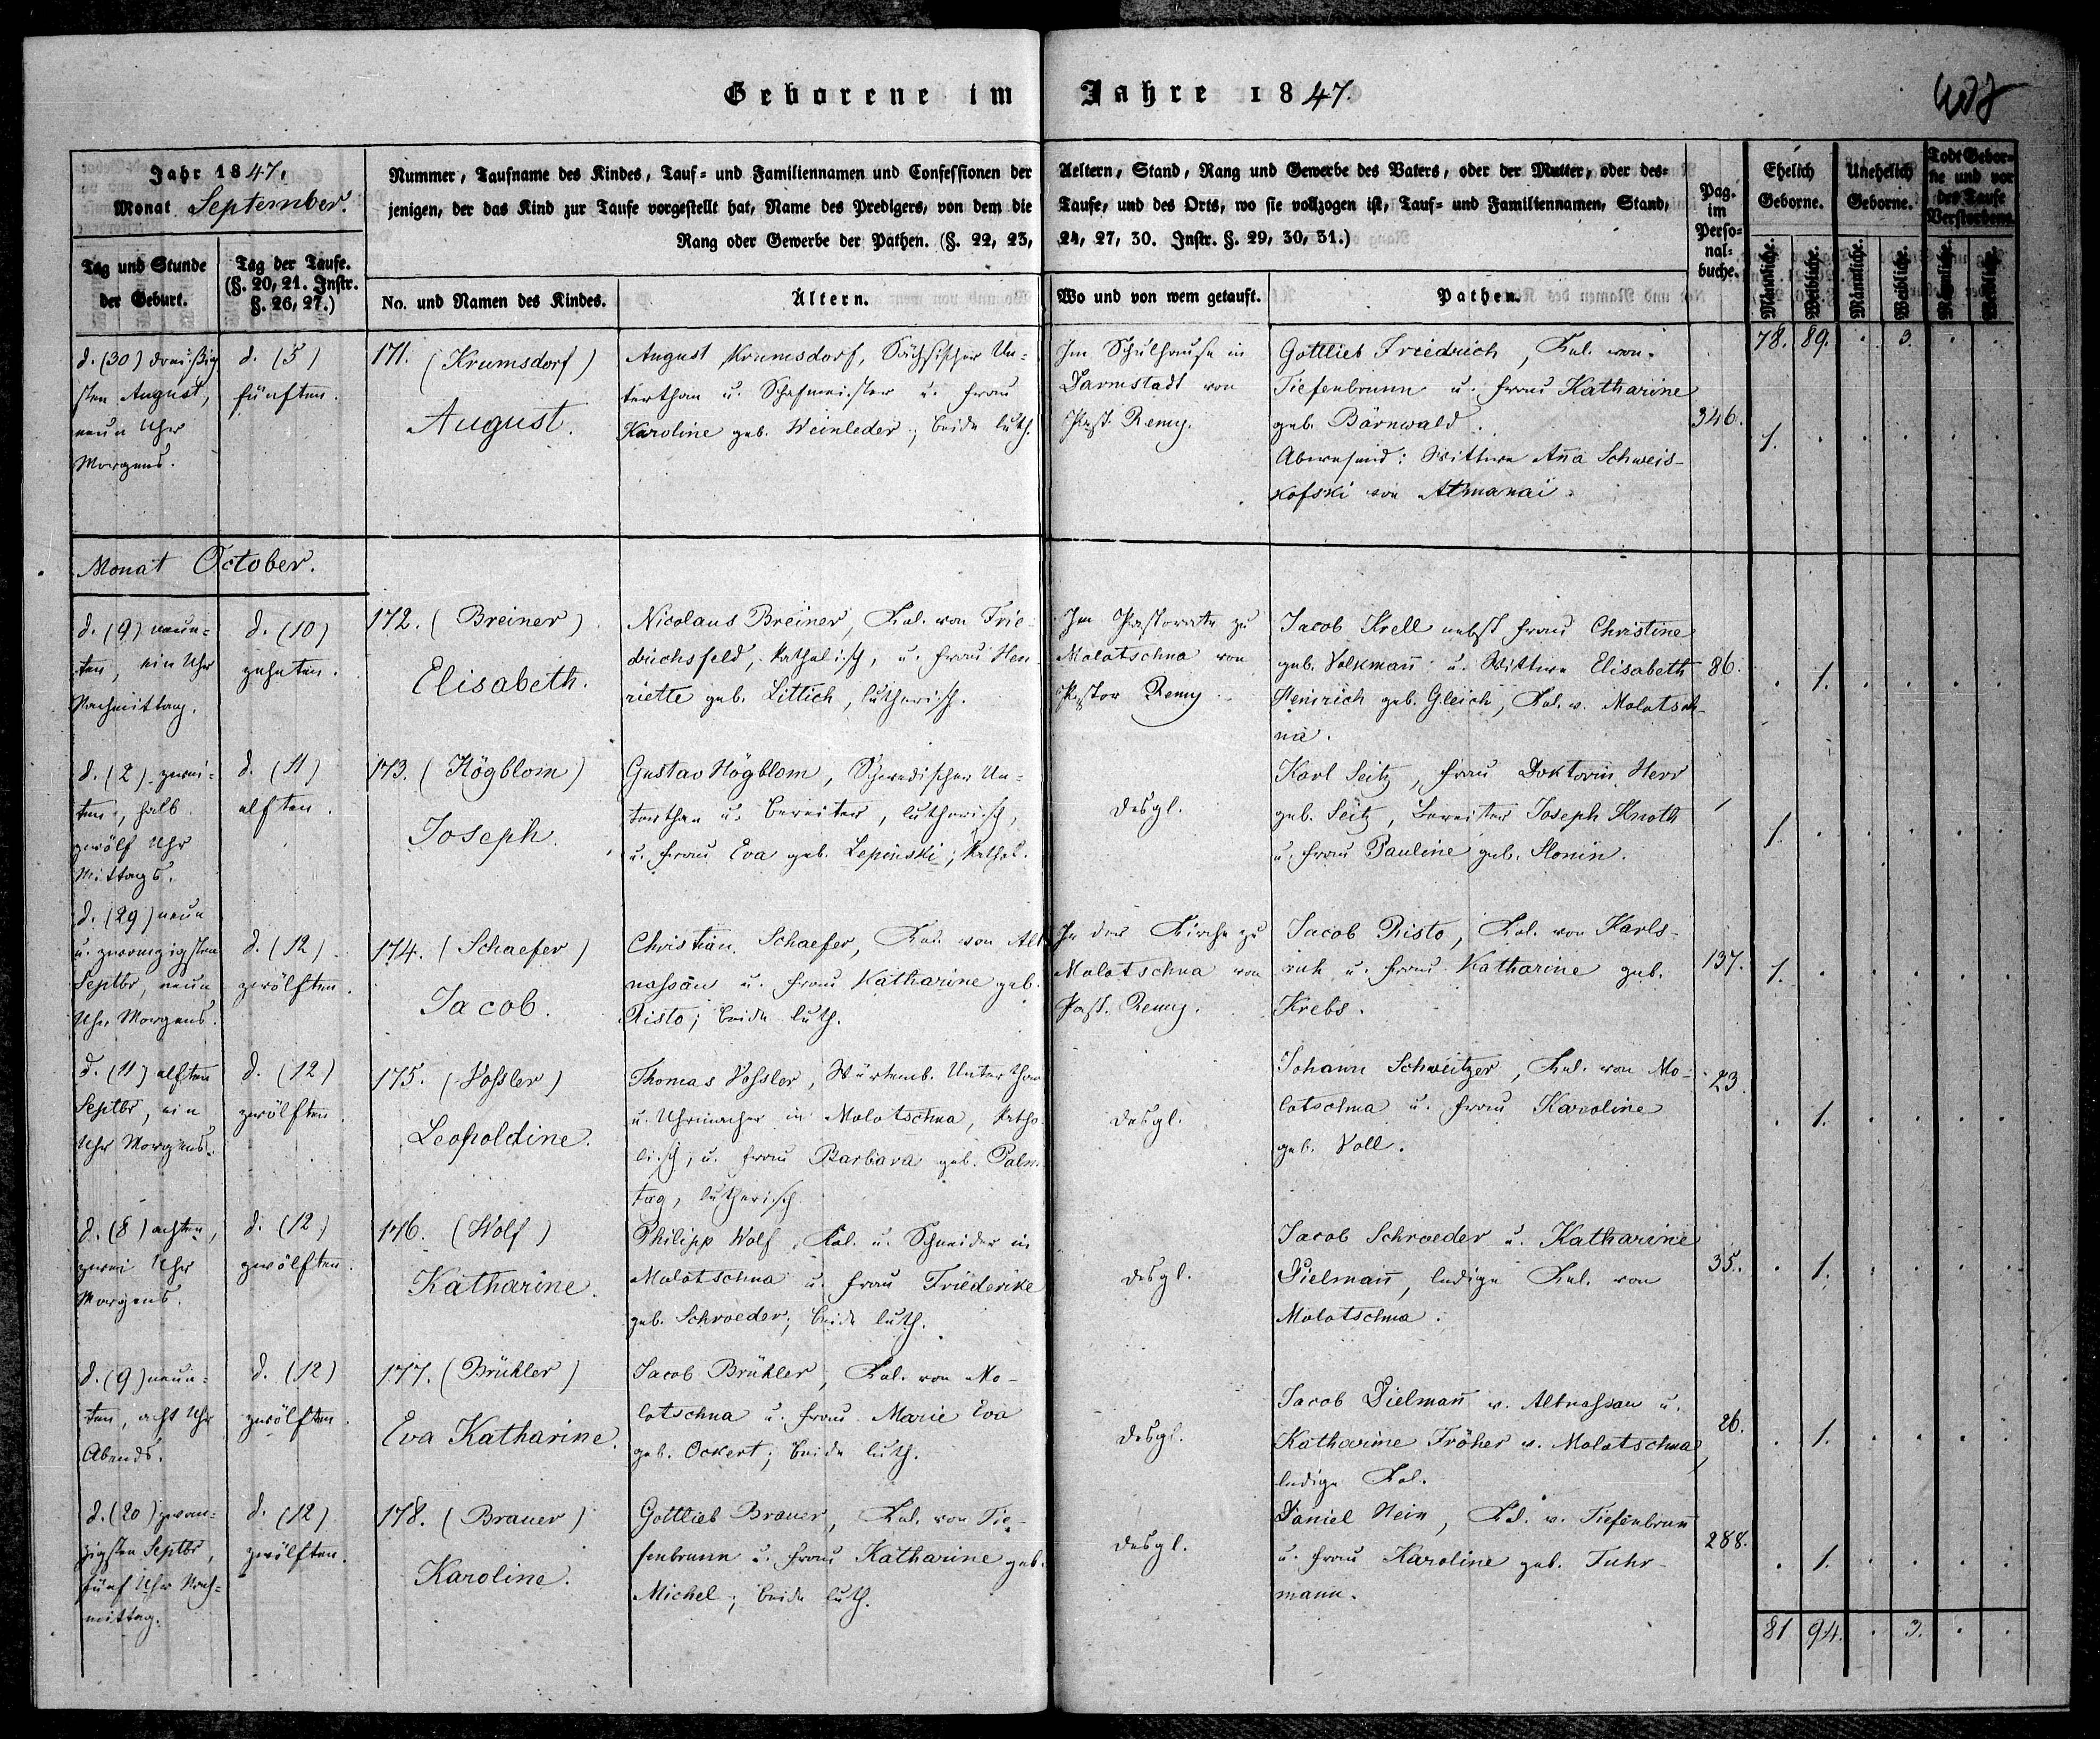 Geborene im Jahre 1847.
Jahr 1847.
Monat September.
Tag und Stunde
der Geburt.
Tag der Taufe.
(§. 20, 21. Instr.
§. 26, 27.)
Nummer, Taufname des Kindes, Tauf- und Familiennamen und Confessionen der
jenigen, der das Kind zur Taufe vorgestellt hat, Name des Predigers, von dem die
Rang oder Gewerbe der Pathen. (§. 22, 23,
No. und Namen des Kindes.
Ältern.
Aeltern, Stand, Rang und Gewerbe des Vaters, oder der Mutter, oder des-
Taufe, und des Orts, wo sie vollzogen ist, Tauf- und Familiennamen, Stand,
24, 27, 30. Instr. §. 29, 30, 31.)
Wo und von wem getauft.
Pathen.
Pag.
im
Perso-
nal-
buche.
Ehelich
Geborne.
Unehelich
Geborne.
Todt Gebor-
ne und vor
der Taufe
Verstorbene.
Männliche.
Weibliche.
Männliche.
Weibliche.
Männliche.
Weibliche.
78. 89. . 3. . .
d. (30) dreißig
sten August,
neun Uhr
Morgens.
d. (5)
fünften.
171. (Krumsdorf)
August.
August Krumsdorf, Sächsischer Un-
terthan u. Schafmeister u. Frau
Karoline geb. Weinleder; beide luth.
Im Schulhause in
Darmstadt von
Past. Remy.
Gottlieb Friedrich, Kol. von
Tiefenbrunn u. Frau Katharine
geb. Bärnwald.
Abwesend: Wittwe Anna Schweis-
kofski von Atmanai.
346.
1. . . . . .
Monat October.
d. (9) neun-
ten, ein Uhr
Nachmittag.
d. (10)
zehnten.
172. (Breiner)
Elisabeth.
Nicolaus Breiner, Kol. von Frie-
drichsfeld, katholisch, u. Frau Hen-
riette geb. Littich, lutherisch.
Im Pastorate zu
Molotschna von
Pastor Remy
Jacob Krell nebst Frau Christine
geb. Volkmann u. Wittwe Elisabeth
Heinrich geb. Gleich, Kol. v. Molotsch-
na.
86.
. 1. . . . .
d. (2) zwei-
ten, halb
zwölf Uhr
Mittags.
d. (11)
elften.
173. (Högblom)
Joseph.
Gustav Högblom, Schwedischer Un-
terthan u. Bereiter, lutherisch,
u. Frau Eva geb. Lepinski; kathol.
desgl.
Karl Seitz, Frau Doktorin Herr
geb. Seitz, Bereiter Joseph Knoth
u. Frau Pauline geb. Slonin.
1. . . . . .
d. (29) neun
u. zwanzigsten
Septbr, neun
Uhr Morgens.
d. (12)
zwölften.
174. (Schaefer)
Jacob.
Christian Schaefer, Kol. von Alt
nassau u. Frau Katharine geb.
Risto; beide luth.
In der Kirche zu
Molotschna von
Past. Remy.
Jacob Risto, Kol. von Karls-
ruh u. Frau Katharine geb.
Krebs.
137.
1. . . . . .
d. (11) elften
Septbr, ein
Uhr Morgens.
d. (12)
zwölften.
175. (Vossler)
Leopoldine.
Thomas Vossler, Würtemb. Unterthan
u. Uhrmacher in Molotschna, katho
lisch, u. Frau Barbara geb. Palm
tag, lutherisch
desgl.
Johann Schweitzer, Kol. von Mo-
lotschna u. Frau Karoline
geb. Voll.
23.
. 1. . . . .
d. (8) achten,
zwei Uhr
Morgens.
d. (12)
zwölften.
176. (Wolf)
Katharine.
Philipp Wolf, Kol. u. Schneider in
Molotschna u. Frau Friederike
geb. Schroeder; beide luth.
desgl.
Jacob Schroeder u. Katharine
Dielmann, ledige Kol. von
Molotschna.
35.
. 1. . . . .
d. (9) neun-
ten, acht Uhr
Abends.
d. (12)
zwölften.
177. (Brühler)
Eva Katharine.
Jacob Brühler, Kol. von Mo-
lotschna u. Frau Marie Eva
geb. Ockert; beide luth.
desgl.
Jacob Dielmann v. Altnassau u.
Katharine Fröher v. Molotschna,
ledige Kol.
26.
. 1. . . . .
d. (20) zwan-
zigsten Septbr,
fünf Uhr Nach-
mittag.
d. (12)
zwölften.
178. (Brauer)
Karoline.
Gottlieb Brauer, Kol. von Tie-
fenbrunn u. Frau Katharine geb.
Michel; beide luth.
desgl.
Daniel Hein, Kol. v. Tiefenbrunn
u. Frau Karoline geb. Fuhr-
mann.
288.
. 1. . . . .
81 94. . 3. . .